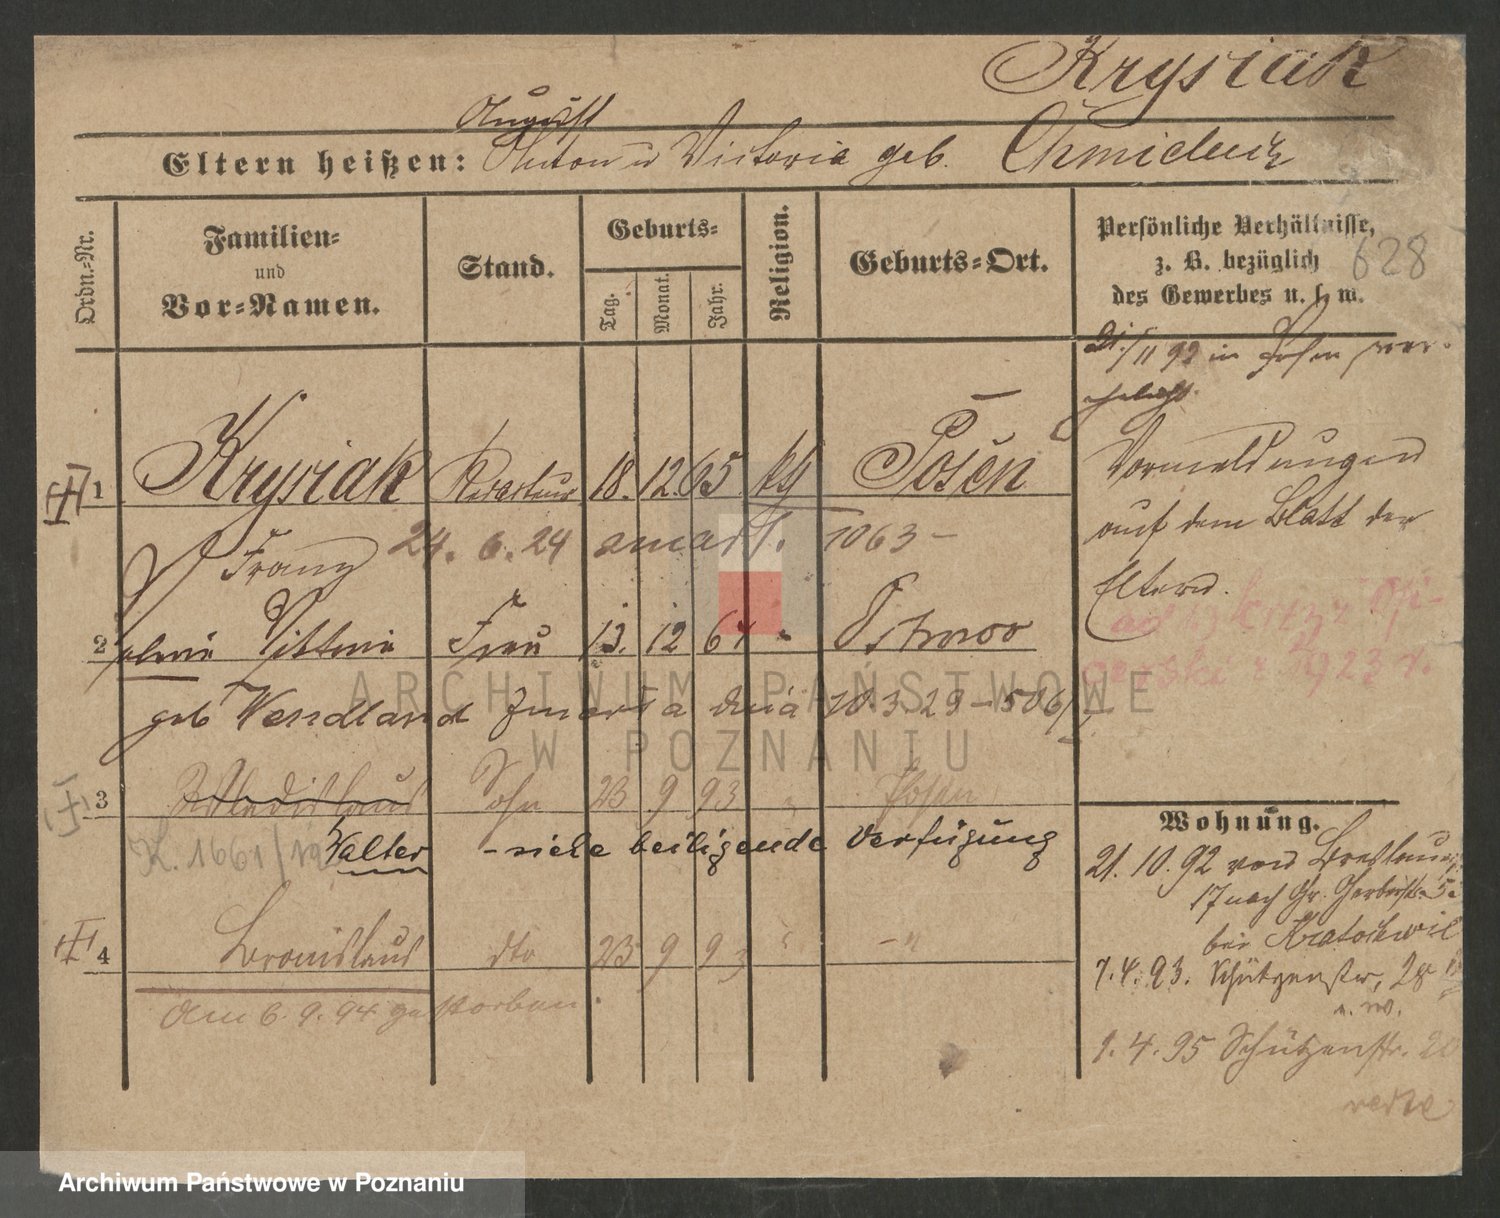 Krysiak
August
Eltern heißen: Anton u Victoria geb.
Ordn.-Nr.
Familien-
und
Vor-Namen.
Stand.
Geburts-
Tag.
Monat.
Jahr.
Religion.
Geburts-Ort.
Persönliche Verhältnisse,
z. B. bezüglich
des Gewerbes u. s. w.
628
/11 92 in Posen ver-
ehelicht.
1 Krysiak 18. 12. 65 kth Posen
Franz 24. 6. 24 1063 -
Vormeldungen
auf dem Blatt der
Eltern.
2 Viktoria Frau 13. 12 64 "
geb Wendland zmarła dnia 10.3.29 - 506/
1923 r.
3 Wladislaus Sohn 23 9 93 " Posen
K. 1661/19 Walter - siehe beiligende Verfügung
4 Bronislaus dto 23 9 93 " - " -
am 6. 9. 94 gestorben.
Wohnung.
21. 10. 92 von Breslauer
17 nach Gr. Gerberstr. 5
bei Kratochwil
1. 4. 93. Schützenstr. 28
1. 4. 95 Schützenstr. 20
ARCHIWUM PAŃSTWOWE
W POZNANIU
Archiwum Państwowe w Poznaniu